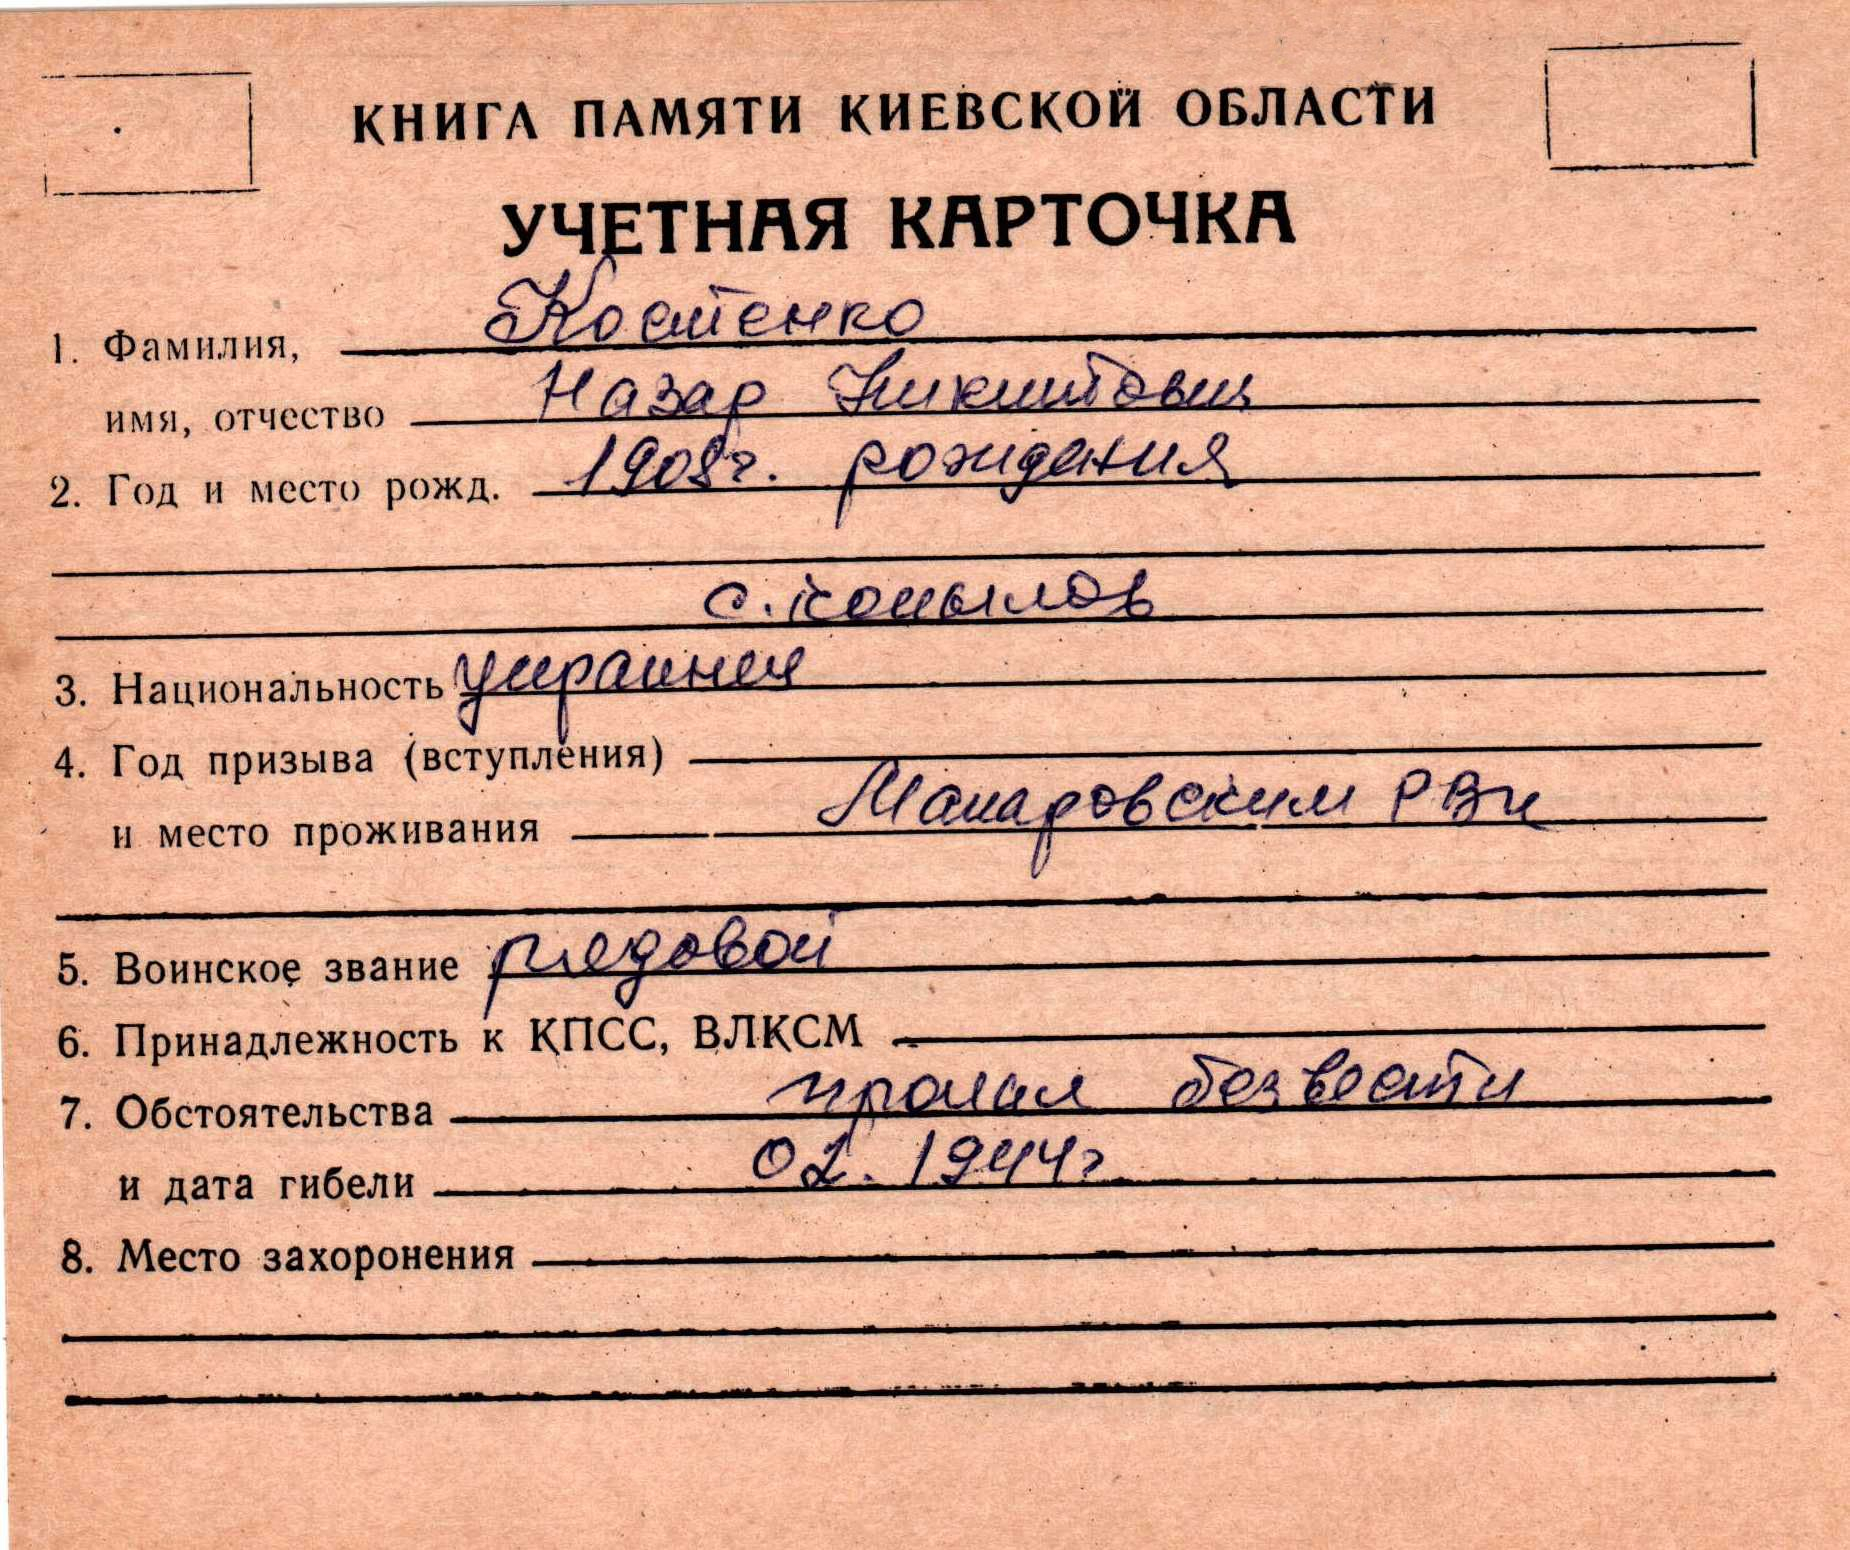 КНИГА ПАМЯТИ КИЕВСКОЙ ОБЛАСТИ
УЧЕТНАЯ КАРТОЧКА
1. Фамилия, Костенко
имя, отчество Назар Никитович
2. Год и место рожд. 1908г. рождения
с. Копылов
3. Национальность украинец
4. Год призыва (вступления)
и место проживания Макаровским РВК
5. Воинское звание рядовой
6. Принадлежность к КПСС, ВЛКСМ
7. Обстоятельства пропал безвести
и дата гибели 02. 1944г
8. Место захоронения